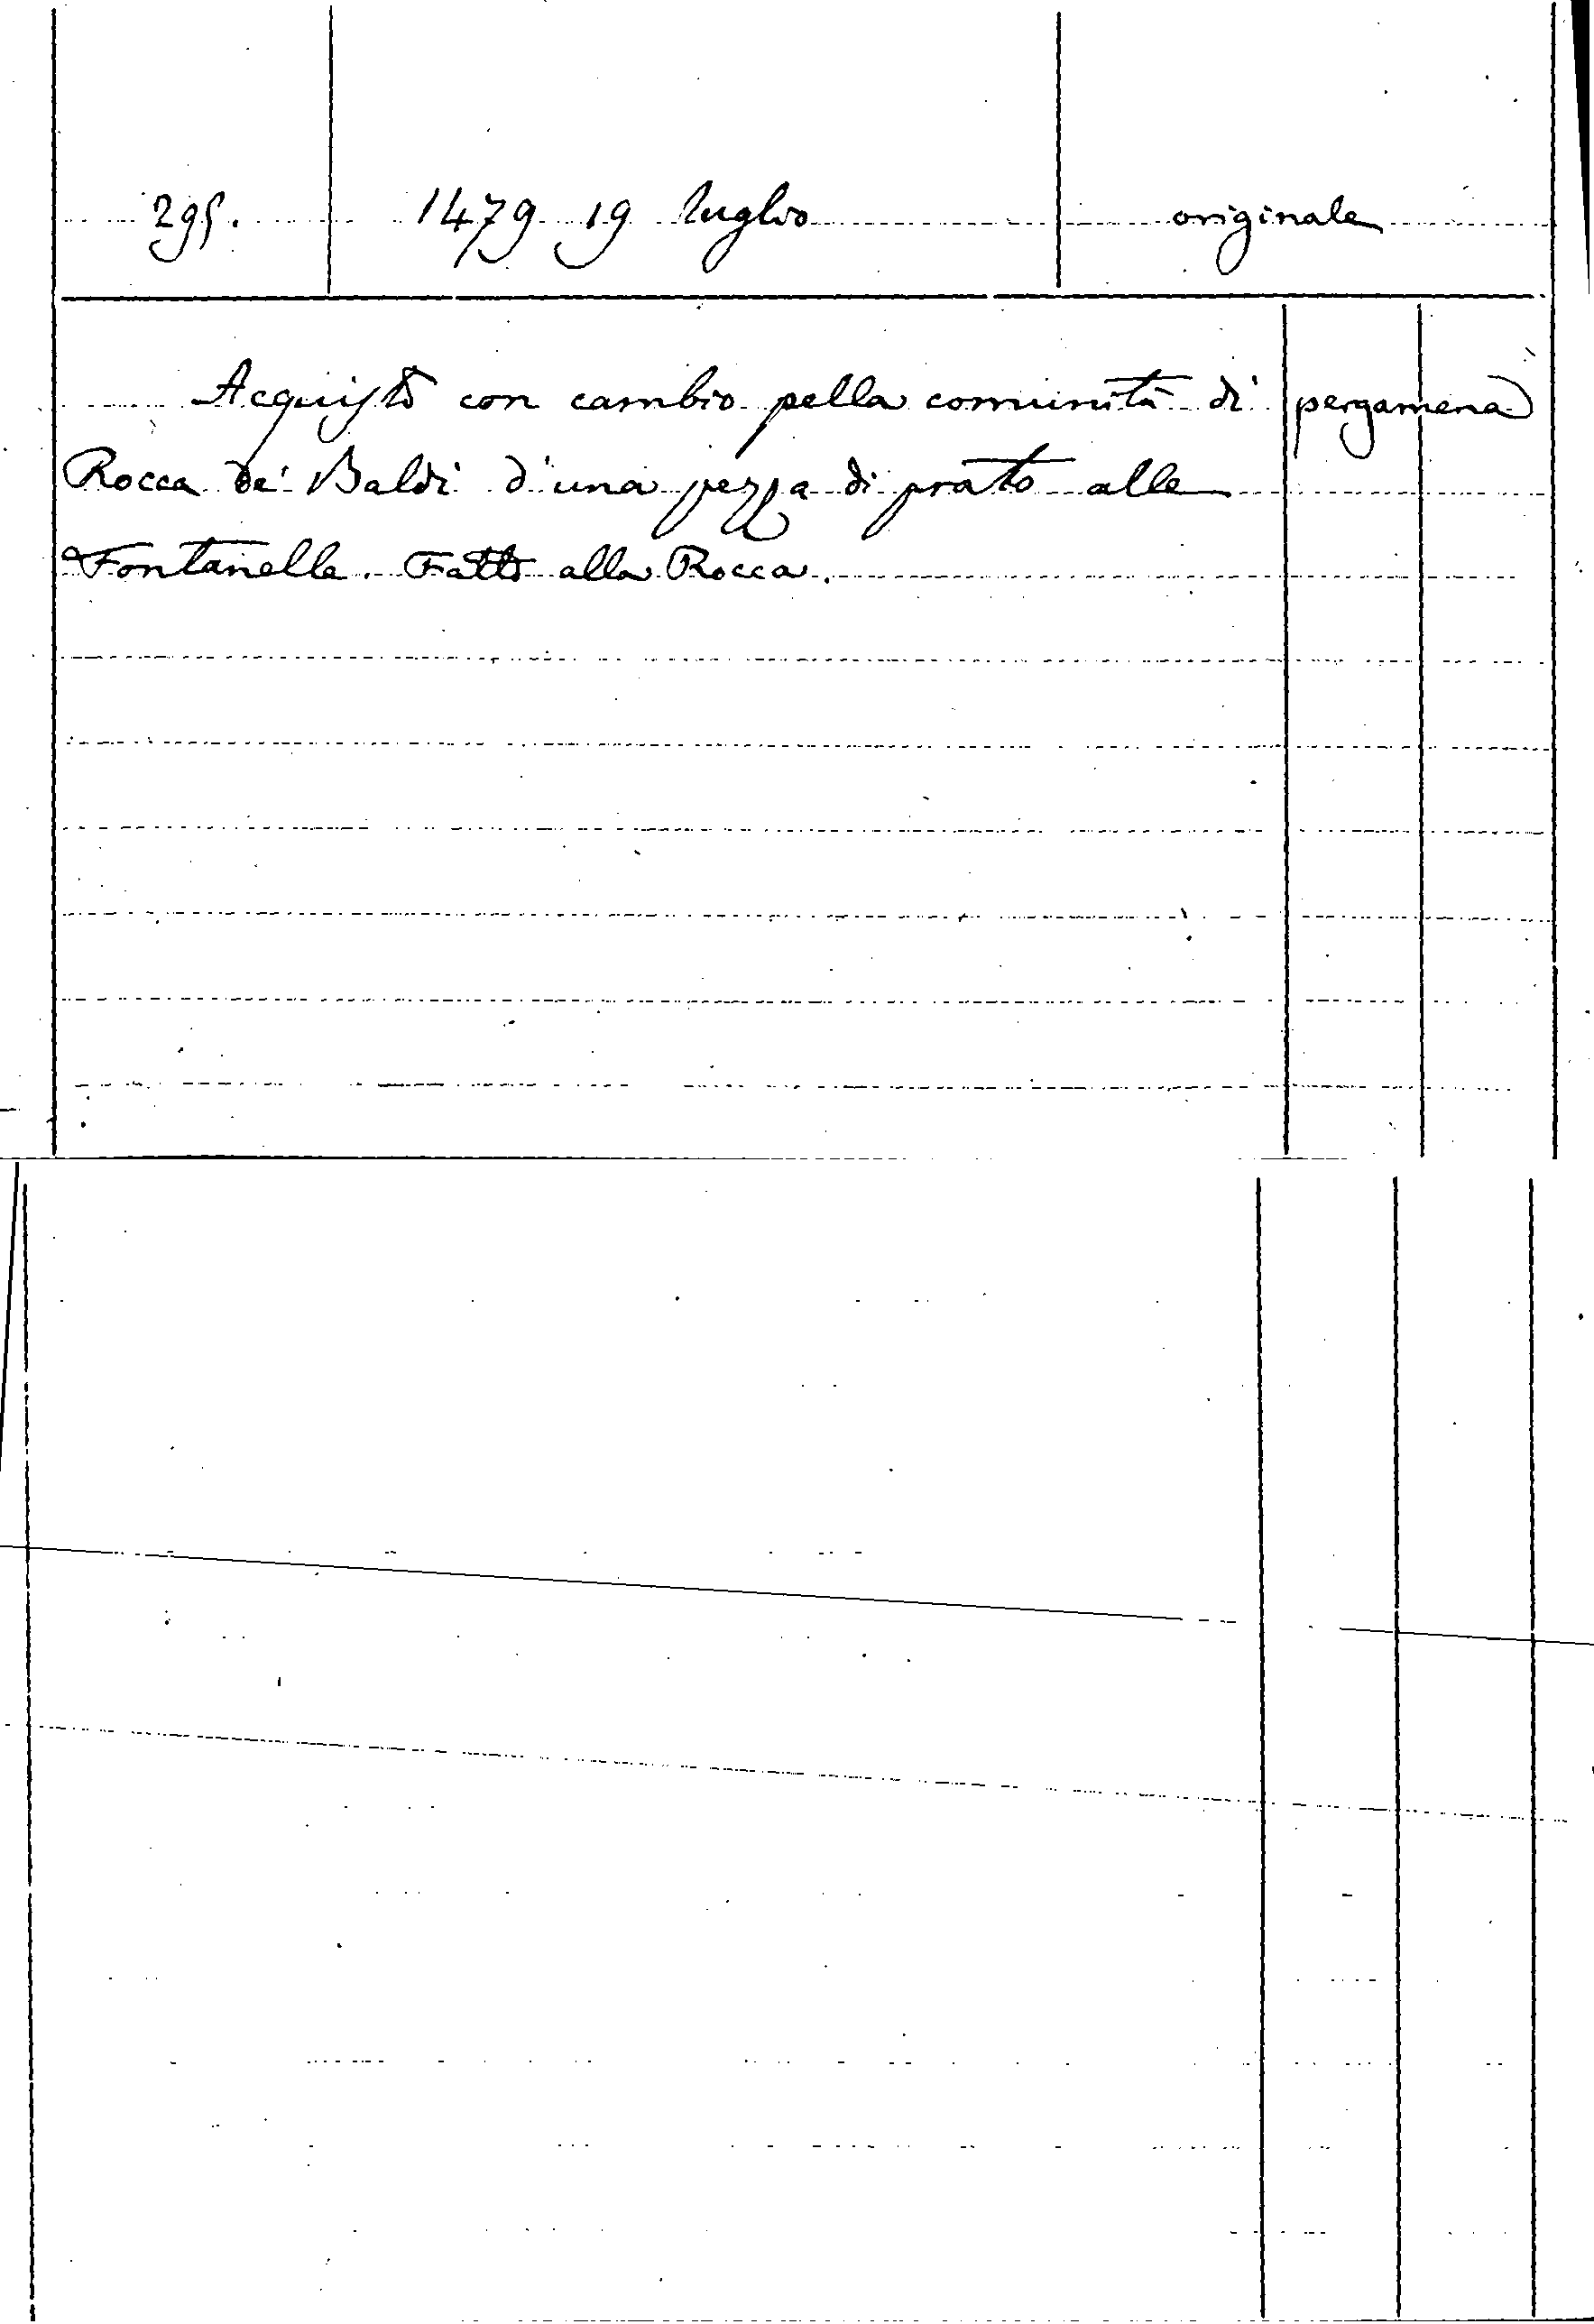 295. 1479 19 luglio originale
Acquisto con cambio pella comunità di pergamena
Rocca de' Baldi d'una pezza di prato alle
Fontanelle. Fatto alla Rocca.